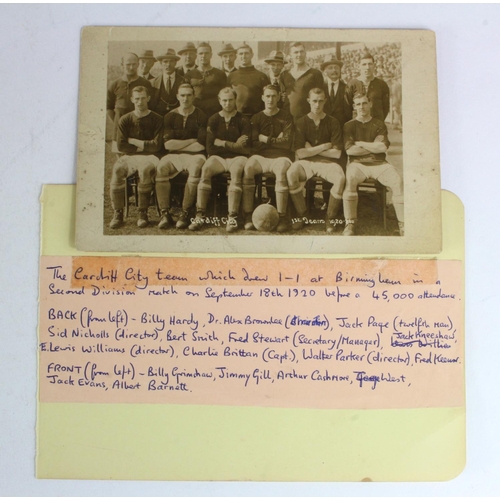 Cardiff City 1st Team 1920-21
The Cardiff City team which drew 1-1 at Birmingham in a
Second Division match on September 18th 1920 before a 45,000 attendance.
BACK (from left) - Billy Hardy, Dr. Alex Brownlee (director), Jack Page (twelfth man)
Sid Nicholls (director), Bert Smith, Fred Stewart (Secretary/Manager), Jack Kneeshaw,
E. Lewis Williams (director), Charlie Brittan (Capt.), Walter Parker (director), Fred Keenor.
FRONT (from left) - Billy Grimshaw, Jimmy Gill, Arthur Cashmore, West,
Jack Evans, Albert Barnett.